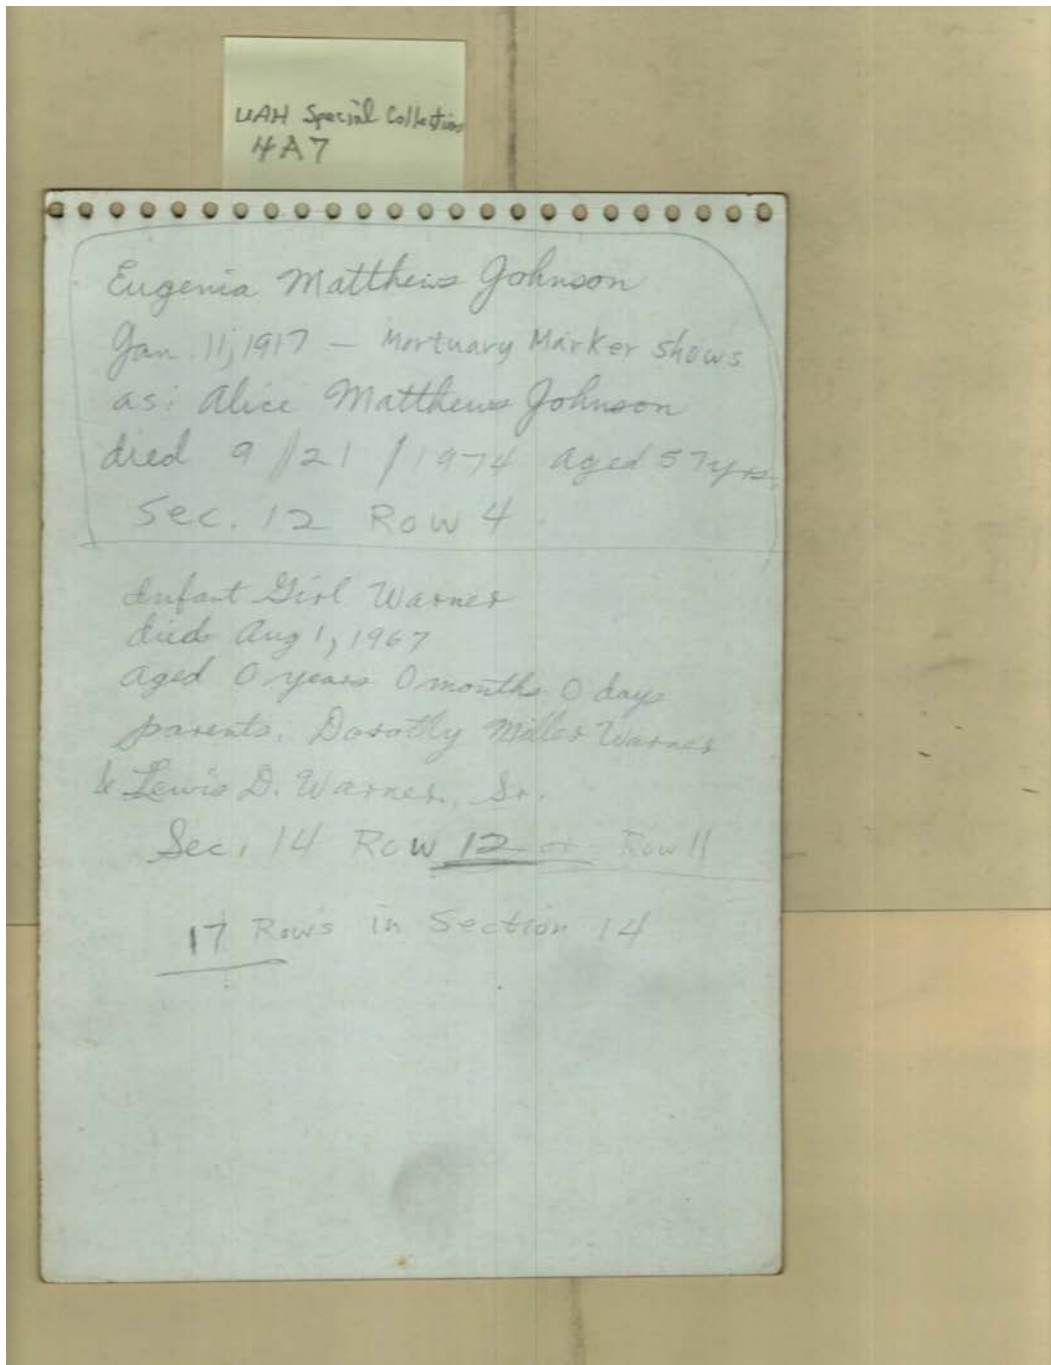 UAH Special Collections
4A7
Eugenia Matthews Johnson
Jan. 11, 1917 – Mortuary Marker shows
as: Alice Matthews Johnson
died 9/21/1974 aged 57 yrs.
Sec. 12 Row 4
Infant Girl Warner
died Aug 1, 1967
aged 0 years 0 months 0 days
parents. Dorothy Miller Warner
& Lewis D. Warner, Sr.
Sec. 14 Row 12 or Row 11
17 Rows in Section 14